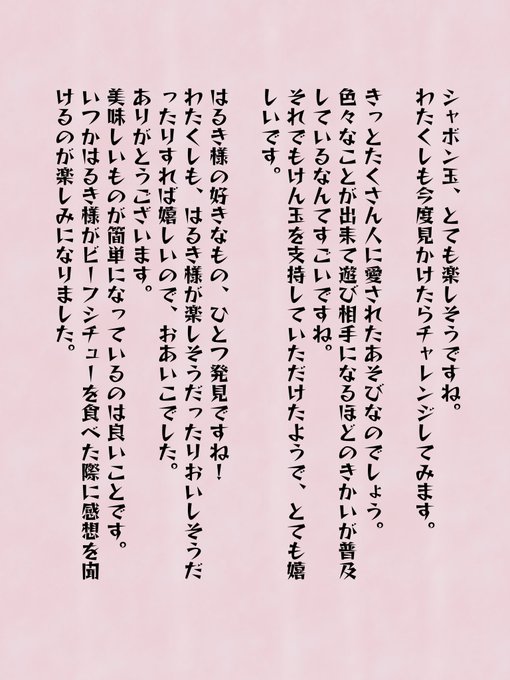 シャボン玉、とても楽しそうですね。
わたくしも今度見かけたらチャレンジしてみます。
きっとたくさん人に愛されたあそびなのでしょう。
色々なことが出来て遊び相手になるほどのきかいが普及
しているなんてすごいですね。
それでもけん玉を支持していただけたようで、とても嬉
しいです。
はるき様の好きなもの、ひとつ発見ですね！
わたくしも、はるき様が楽しそうだったりおいしそうだ
ったりすれば嬉しいので、おあいこでした。
ありがとうございます。
美味しいものが簡単になっているのは良いことです。
いつかはるき様がビーフシチューを食べた際に感想を聞
けるのが楽しみになりました。